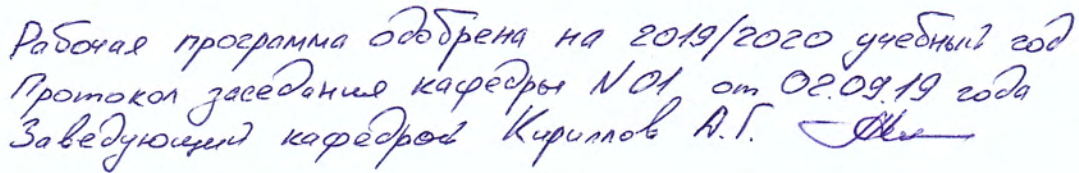 Рабочая программа одобрена на 2019/2020 учебный год
Протокол заседания кафедры №01 от 02.09.19 года
Заведующий кафедрой Кириллов А.Г.